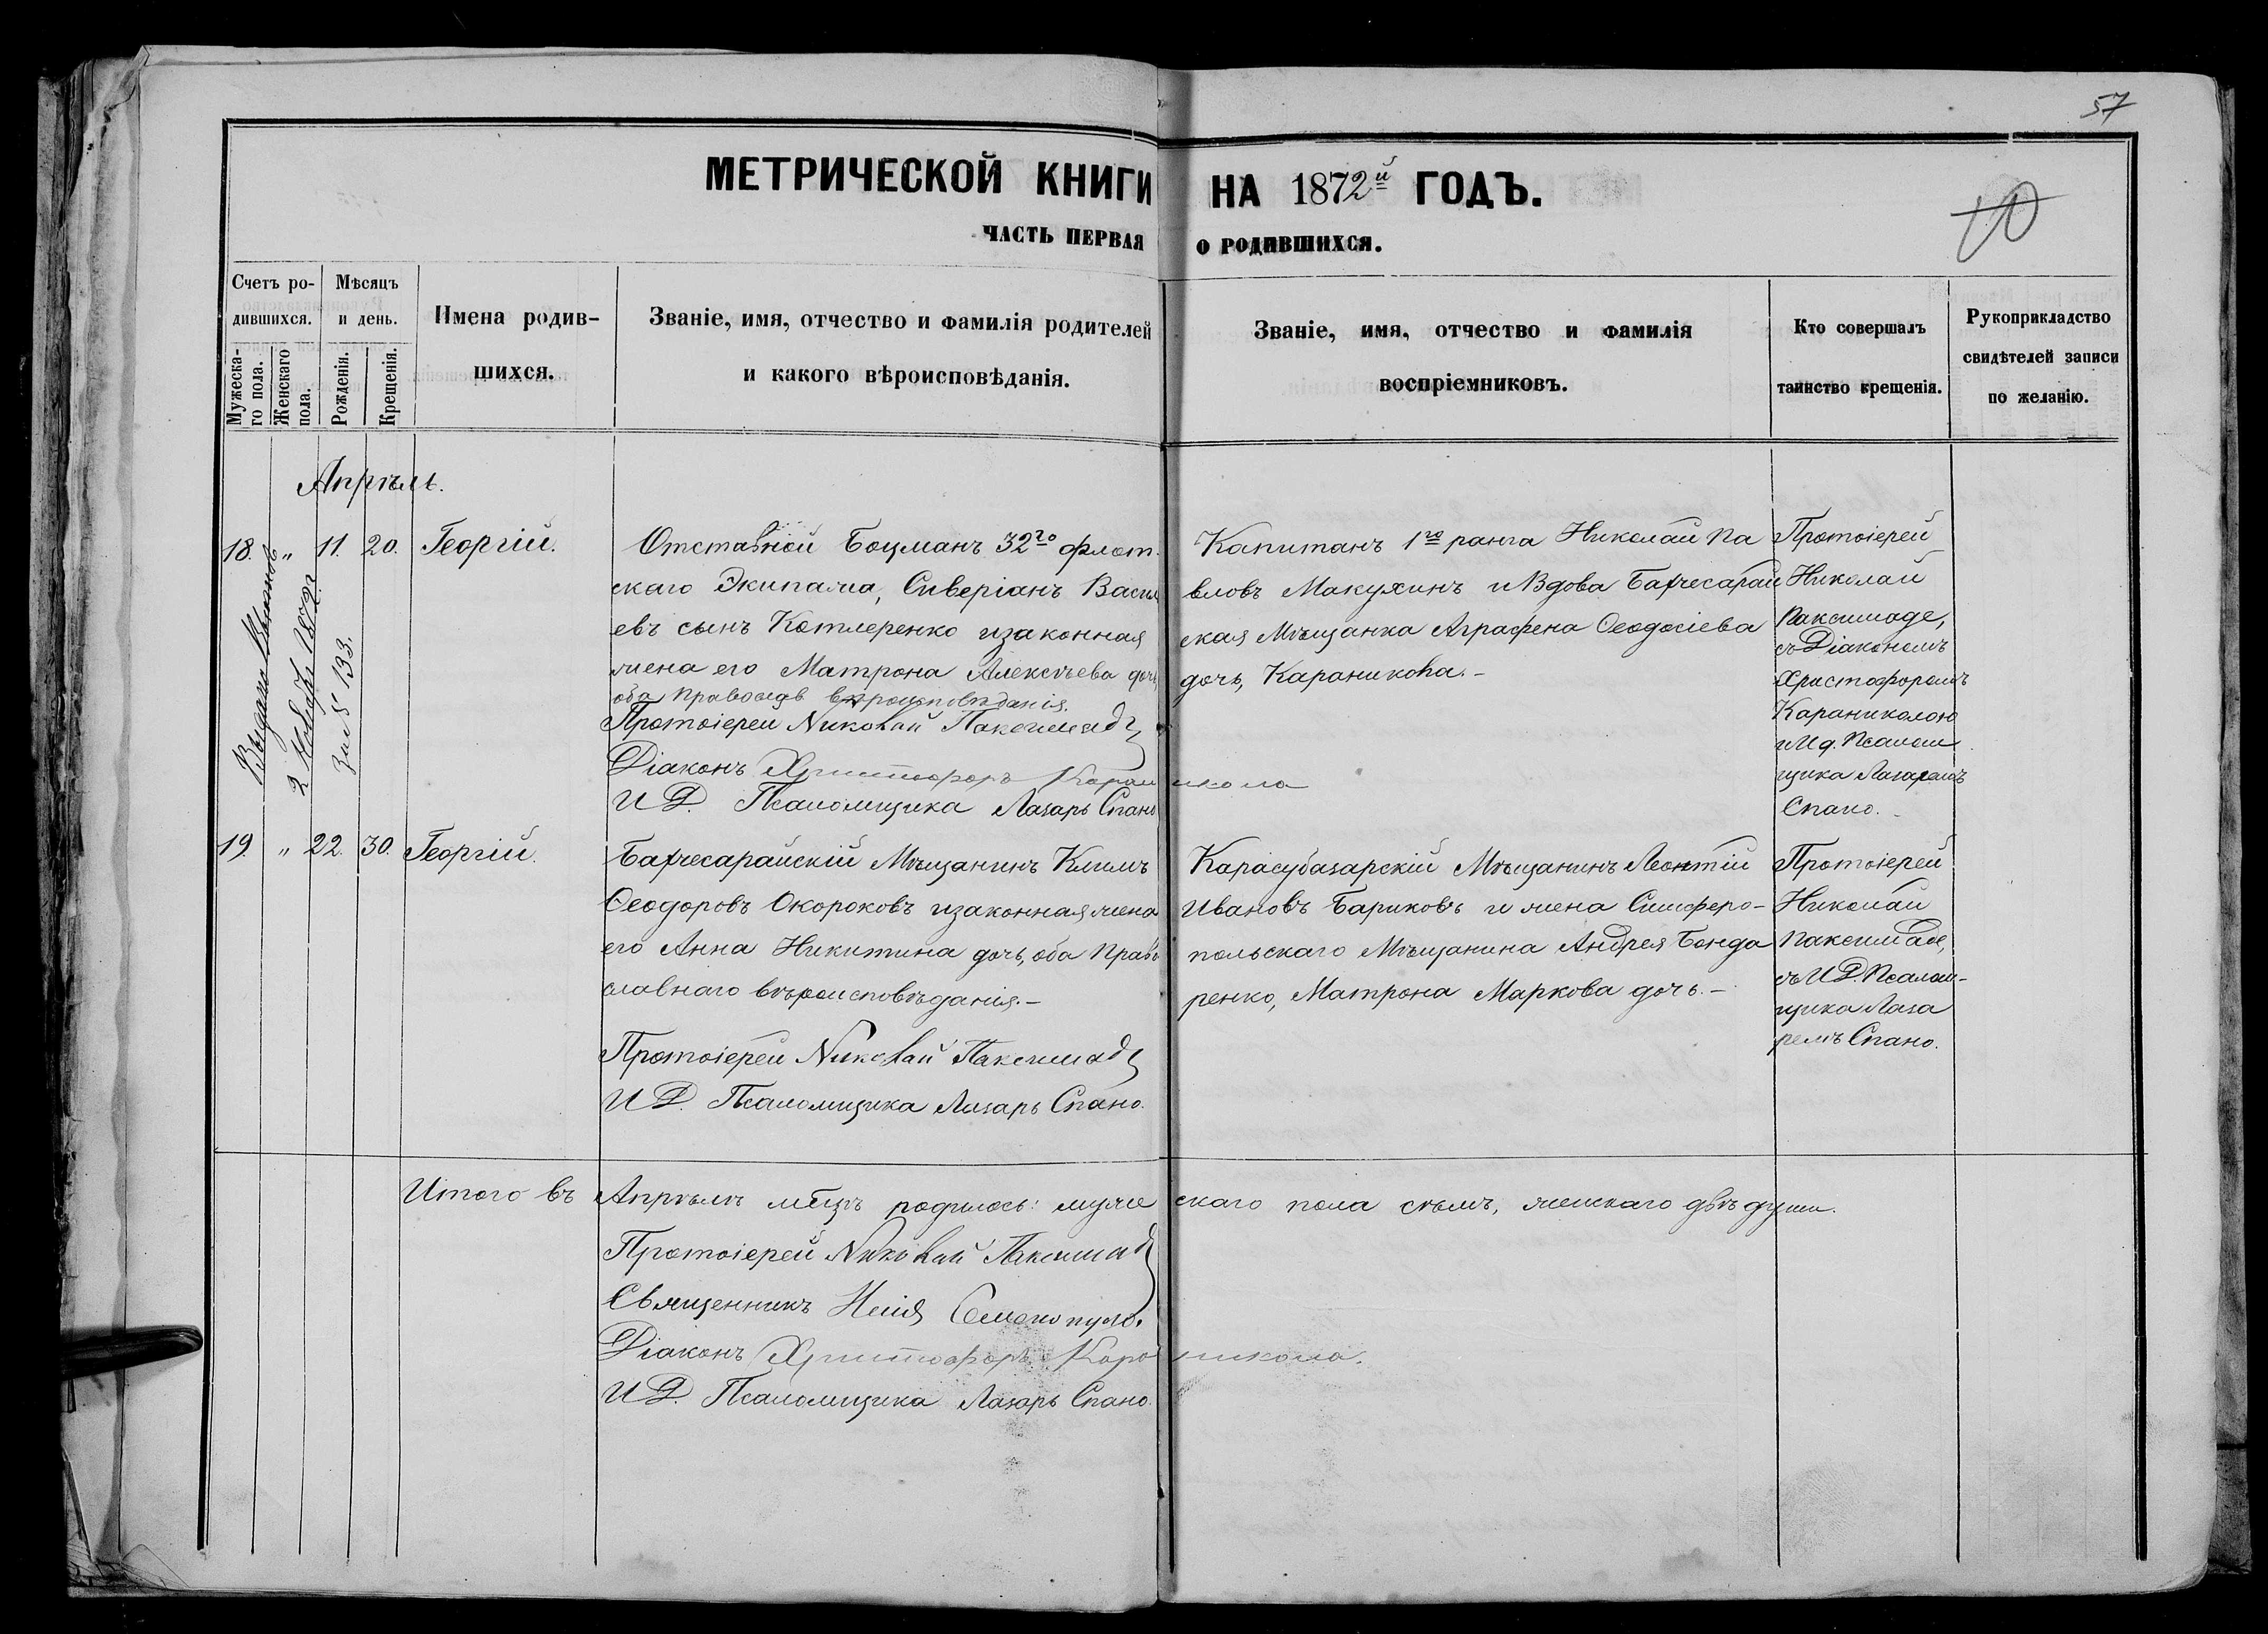 57
МЕТРИЧЕСКОЙ КНИГИ НА 1872й ГОДЪ.
10
ЧАСТЬ ПЕРВАЯ О РОДИВШИХСЯ.
Счетъ ро-
дившихся.
Мужеска-
го пола.
Женскаго
пола.
Мѣсяцъ
и день.
Рожденія.
Крещенія.
Имена родив-
шихся.
Званіе, имя, отчество и фамилія родителей
и какого вѣроисповѣданія.
Званіе, имя, отчество и фамилія
воспріемниковъ.
Кто совершалъ
таинство крещенія.
Рукоприкладство
свидѣтелей записи
по желанію.
Апрѣль.
18. „ 11. 20. Георгій.
Отставной Боцманъ 32го флот
скаго Экипажа, Сиверіанъ Васил
евъ сынъ Котлеренко и законная
жена его Матрона Алексѣева дочь,
оба Православ вѣроисповѣданія.
Протоіерей Николай Паксимаде
Діаконъ Христофоръ Караникола
И Д. Псаломщика Лазарь Спано
Капитанъ 1го ранга Николай Па
вловъ Макухинъ и Вдова Бахчесарай
ская Мѣщанка Аграфена Ѳеодосіева
дочь, Караникова.-
Протоіерей
Николай
Паксимаде,
съ Діакономъ
Христофоромъ
Караниколою
и И д. Псалом
щика Лазаремъ
Спано.
2 Ноября 1872 г
за № 133.
19. „ 22. 30. Георгій.
Бахчесарайскій Мѣщанинъ Климъ
Ѳеодоровъ Окороковъ и законная жена
его Анна Никитина дочь, оба Право
славнаго вѣроисповѣданія.-
Протоіерей Николай Паксимаде
И Д. Псаломщика Лазарь Спано.
Карасубазарскій Мѣщанинъ Леонтій
Ивановъ Бариковъ и жена Симферо-
польскаго Мѣщанина Андрея Бонда
ренко, Матрона Маркова дочь.-
Протоіерей
Николай
Паксимаде,
съ И Д. Псалом-
щика Лаза
ремъ Спано.
Итого въ Апрѣлѣ мѣцѣ родилось: муже скаго пола сѣмъ, женскаго двѣ души.
Протоіерей Николай Паксимаде
Священникъ
Діаконъ Христофоръ Караникола.
И Д. Псаломщика Лазарь Спано.